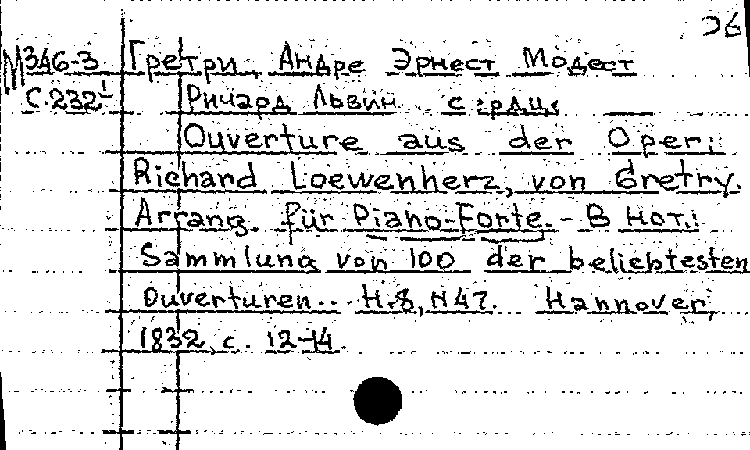 36
М346-3 Гретри, Андре Эрнест Модест
С.232¹ Ричард Львин. сердце
Ouverture aus der Oper:
Richard Loewenherz, von Gretry.
Arrang. für Piano-Forte. - В нот.:
Sammlung von 100 der beliebtesten
Ouverturen.. H.8, N47. Hannover,
1832, с. 12-14.